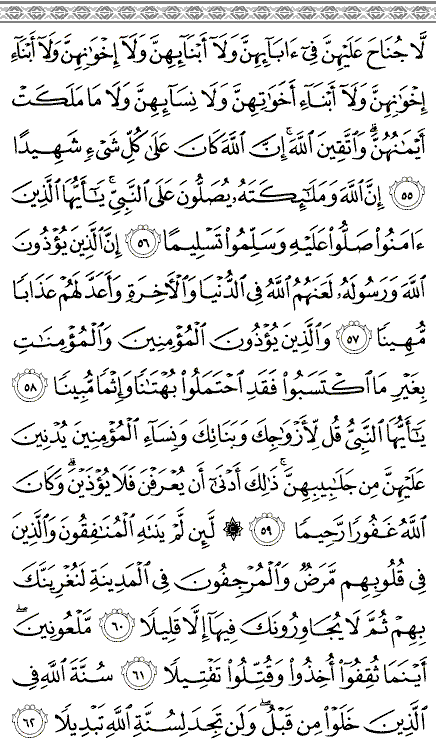 لَّا جُنَاحَ عَلَيْهِنَّ فِىٓ ءَابَآئِهِنَّ وَلَآ أَبْنَآئِهِنَّ وَلَآ إِخْوَٰنِهِنَّ وَلَآ أَبْنَآءِ
إِخْوَٰنِهِنَّ وَلَآ أَبْنَآءِ أَخَوَٰتِهِنَّ وَلَا نِسَآئِهِنَّ وَلَا مَا مَلَكَتْ
أَيْمَٰنُهُنَّ ۗ وَٱتَّقِينَ ٱللَّهَ ۚ إِنَّ ٱللَّهَ كَانَ عَلَىٰ كُلِّ شَىْءٍ شَهِيدًا
۝٥٥ إِنَّ ٱللَّهَ وَمَلَٰٓئِكَتَهُۥ يُصَلُّونَ عَلَى ٱلنَّبِىِّ ۚ يَٰٓأَيُّهَا ٱلَّذِينَ
ءَامَنُوا۟ صَلُّوا۟ عَلَيْهِ وَسَلِّمُوا۟ تَسْلِيمًا ۝٥٦ إِنَّ ٱلَّذِينَ يُؤْذُونَ
ٱللَّهَ وَرَسُولَهُۥ لَعَنَهُمُ ٱللَّهُ فِى ٱلدُّنْيَا وَٱلْءَاخِرَةِ وَأَعَدَّ لَهُمْ عَذَابًا
مُّهِينًا ۝٥٧ وَٱلَّذِينَ يُؤْذُونَ ٱلْمُؤْمِنِينَ وَٱلْمُؤْمِنَٰتِ
بِغَيْرِ مَا ٱكْتَسَبُوا۟ فَقَدِ ٱحْتَمَلُوا۟ بُهْتَٰنًا وَإِثْمًا مُّبِينًا ۝٥٨
يَٰٓأَيُّهَا ٱلنَّبِىُّ قُل لِّأَزْوَٰجِكَ وَبَنَاتِكَ وَنِسَآءِ ٱلْمُؤْمِنِينَ يُدْنِينَ
عَلَيْهِنَّ مِن جَلَٰبِيبِهِنَّ ۚ ذَٰلِكَ أَدْنَىٰٓ أَن يُعْرَفْنَ فَلَا يُؤْذَيْنَ ۗ وَكَانَ
ٱللَّهُ غَفُورًا رَّحِيمًا ۝٥٩ ۞ لَّئِن لَّمْ يَنتَهِ ٱلْمُنَٰفِقُونَ وَٱلَّذِينَ
فِى قُلُوبِهِم مَّرَضٌ وَٱلْمُرْجِفُونَ فِى ٱلْمَدِينَةِ لَنُغْرِيَنَّكَ
بِهِمْ ثُمَّ لَا يُجَاوِرُونَكَ فِيهَآ إِلَّا قَلِيلًا ۝٦٠ مَّلْعُونِينَ ۖ
أَيْنَمَا ثُقِفُوٓا۟ أُخِذُوا۟ وَقُتِّلُوا۟ تَقْتِيلًا ۝٦١ سُنَّةَ ٱللَّهِ فِى
ٱلَّذِينَ خَلَوْا۟ مِن قَبْلُ ۖ وَلَن تَجِدَ لِسُنَّةِ ٱللَّهِ تَبْدِيلًا ۝٦٢